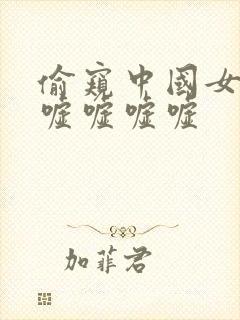 偷窺中國女
嘘嘘嘘嘘
加菲君